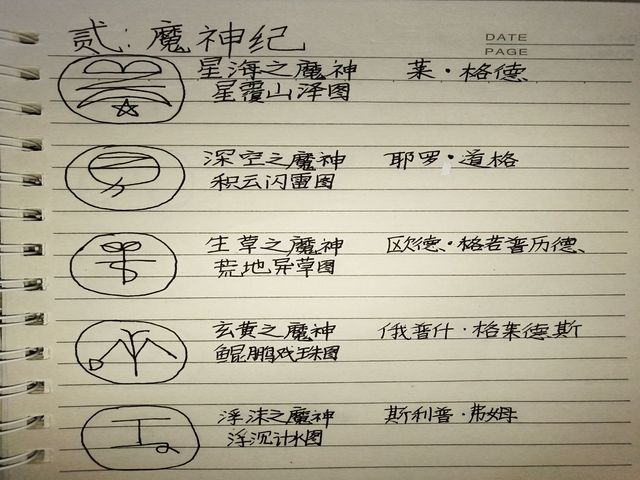 贰:魔神纪
DATE
PAGE
星海之魔神 莱·格德
星覆山泽图
深空之魔神 耶罗·道格
积云闪雷图
生草之魔神 区欠德·格若普历德、
荒地异草图
玄黄之魔神 俄普什·格莱德斯
鲲鹏戏珠图
浮沫之魔神 斯利普·弗姆
浮沉计水图